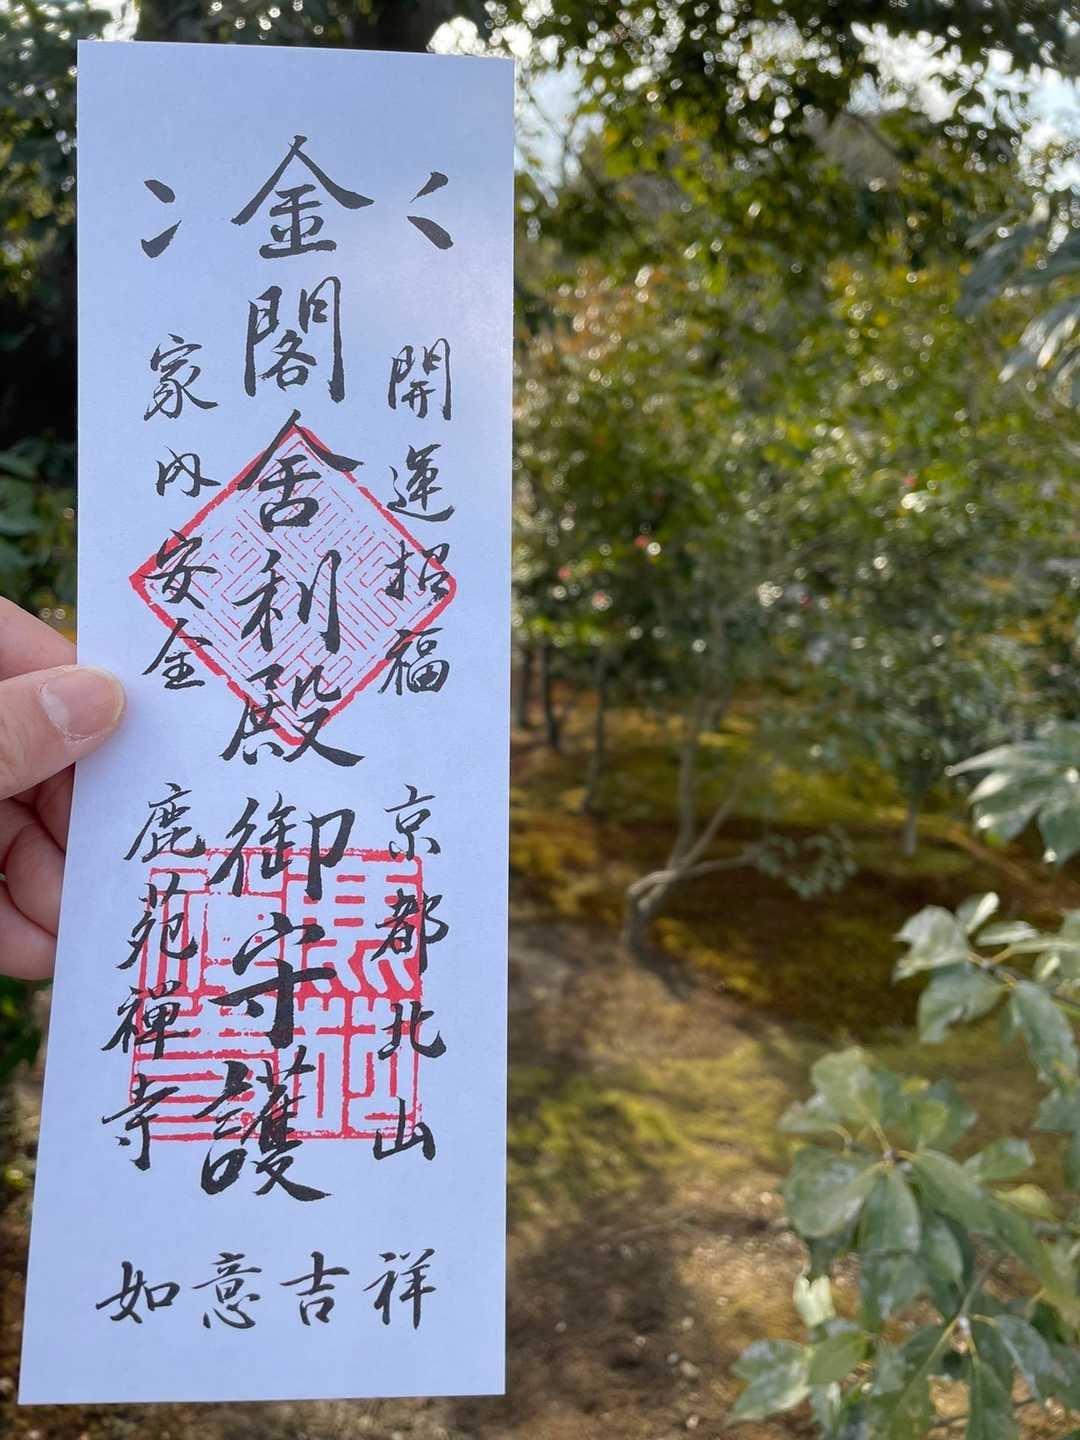 金閣舍利殿御守護
開運招福
家內安全
京都北山
鹿苑禅寺
如意吉祥